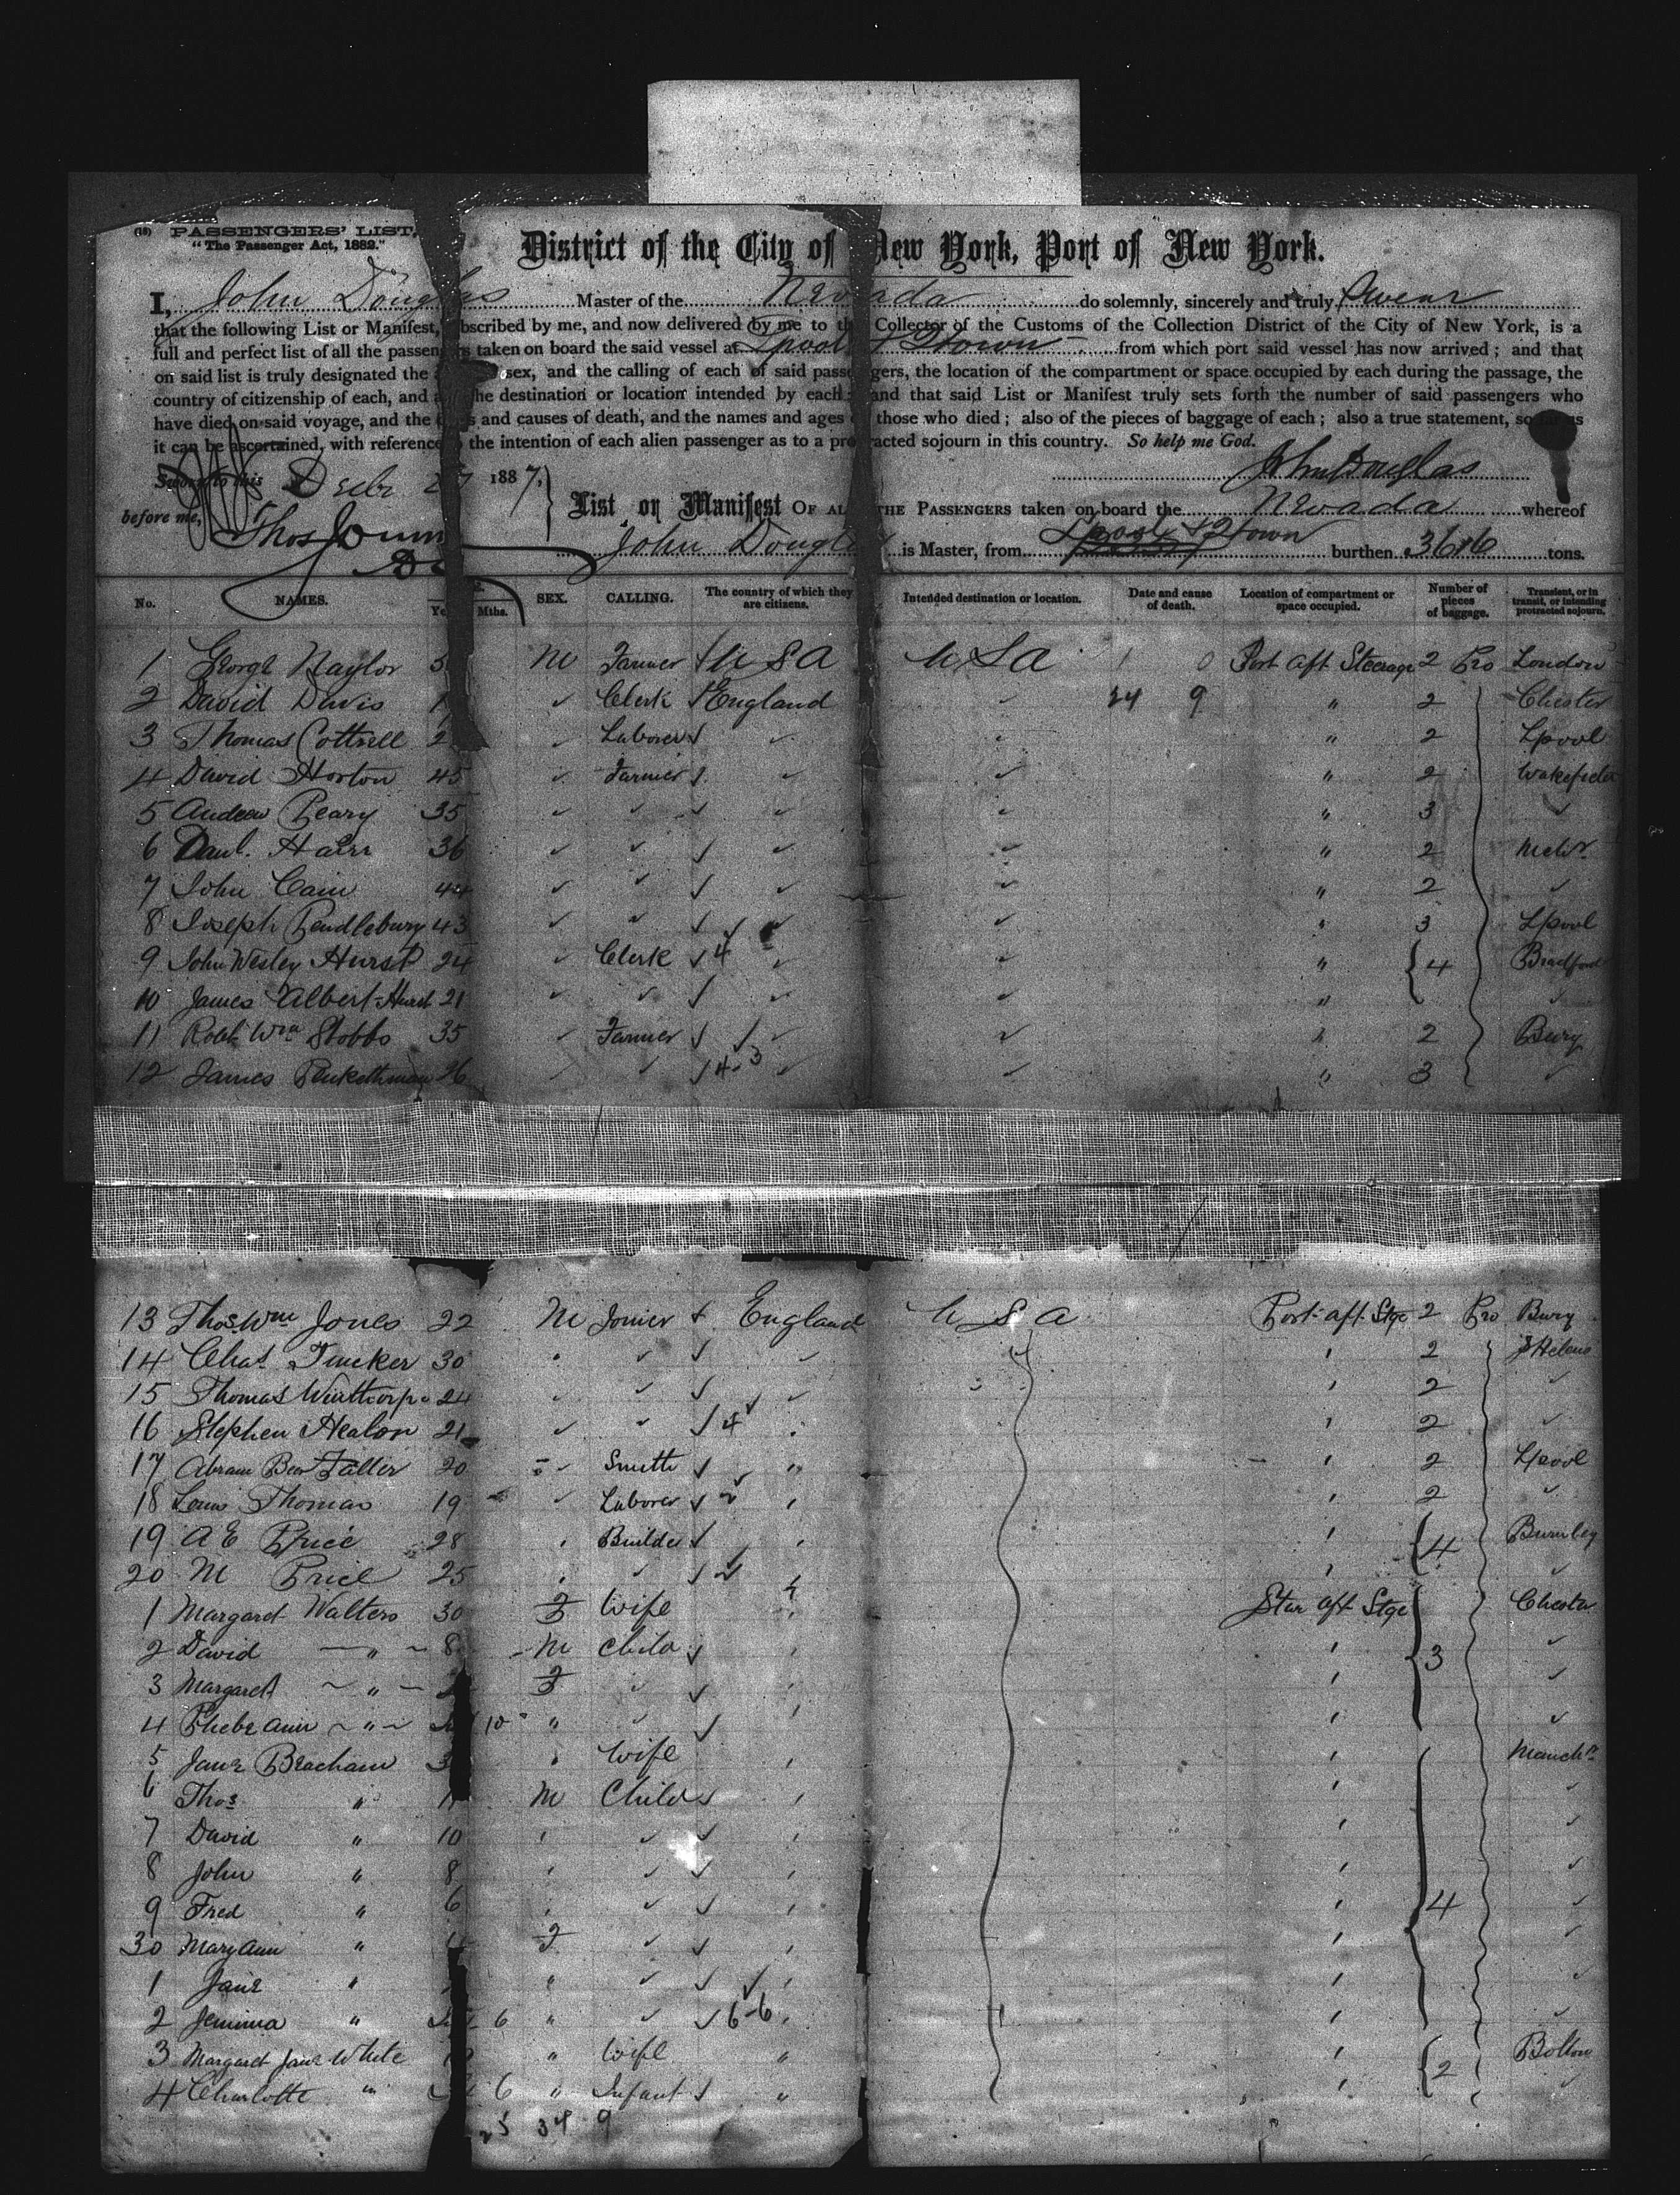 (18) PASSENGERS' LIST,
"The Passenger Act, 1882."
District of the City of New York, Port of New York.
I, John Douglas Master of the Nevada do solemnly, sincerely and truly Swear
that the following List or Manifest, subscribed by me, and now delivered by me to the Collector of the Customs of the Collection District of the City of New York, is a
full and perfect list of all the passengers taken on board the said vessel at Lpool & Qtown from which port said vessel has now arrived; and that
on said list is truly designated the sex, and the calling of each of said passengers, the location of the compartment or space occupied by each during the passage, the
country of citizenship of each, and the destination or location intended by each; and that said List or Manifest truly sets forth the number of said passengers who
have died on said voyage, and the and causes of death, and the names and ages of those who died; also of the pieces of baggage of each; also a true statement, so far as
it can be ascertained, with reference to the intention of each alien passenger as to a protracted sojourn in this country. So help me God.
John Douglas
Sworn to this Decbr 27 1887,
before me, Thos
List or Manifest OF ALL THE PASSENGERS taken on board the Nevada whereof
John Douglas is Master, from Lpool & Qtown burthen 3616 tons.
No. NAMES. Mths. SEX. CALLING. The country of which they are citizens. Intended destination or location. Date and cause of death. Location of compartment or space occupied. Number of pieces of baggage. Transient, or in transit, or intending protracted sojourn.
1 George Naylor 5 M Farmer U S A U S A Port Aft Steerage 2 Pro London
2 David Davis 1 ✓ Clerk England ✓ 24 9 " 2 Chester
3 Thomas Cottrell 2 ✓ Laborer ✓ ✓ " 2 Lpool
4 David Horton 45 ✓ Farmer ✓ ✓ " 2 Wakefield
5 Andrew Peary 35 ✓ ✓ ✓ ✓ " 3 ✓
6 Danl. Hairr 36 ✓ ✓ ✓ ✓ " 2 Mchr
7 John Cain 44 ✓ ✓ ✓ ✓ " 2 ✓
8 Joseph Pendlebury 43 ✓ ✓ ✓ ✓ " 3 Lpool
9 John Wesley Hurst 24 ✓ Clerk ✓ 4 ✓ ✓ " 4 Bradford
10 James Albert Hurst 21 ✓ ✓ ✓ ✓ ✓ " ✓
11 Robt Wm Stobbs 35 ✓ Farmer ✓ ✓ ✓ " 2 Bury
12 James Penkethman 26 ✓ ✓ 4-3 ✓ ✓ " 3 ✓
13 Thos Wm Jones 22 M Joiner England U S A Port aft Stge 2 Pro Bury
14 Chas Tucker 30 " ✓ ✓ ✓ 2 St Helens
15 Thomas Winthorpe 24 ✓ ✓ ✓ ✓ 2 ✓
16 Stephen Healon 21 ✓ ✓ ✓ 4 2 ✓
17 Abram Ben Faller 20 ✓ Smith ✓ " 2 Lpool
18 Louis Thomas 19 ✓ Laborer ✓ 2 2 ✓
19 A E Price 28 Builder ✓ 4 Burnley
20 M Price 25 ✓ ✓ 2 ✓
1 Margaret Walters 30 F Wife Star aft Stge Chester
2 David " 8 M Child ✓ 3 ✓
3 Margaret " F ✓ ✓ ✓
4 Phebe Ann " 10 " ✓ ✓ ✓
5 Jane Beacham 3 Wife Manchr
6 Thos " 11 M Child ✓ ✓
7 David " 10 ✓ ✓ ✓
8 John " 8 ✓ ✓ ✓
9 Fred " 6 ✓ ✓ 4 ✓
30 Mary Ann " F ✓ ✓ ✓
1 Jane " " ✓ ✓ ✓
2 Jemima " 6 " ✓ ✓ 6-6 ✓
3 Margaret Jane White " Wife " 2 Bolton
4 Charlotte " 6 " Infant ✓ " ✓
34 9